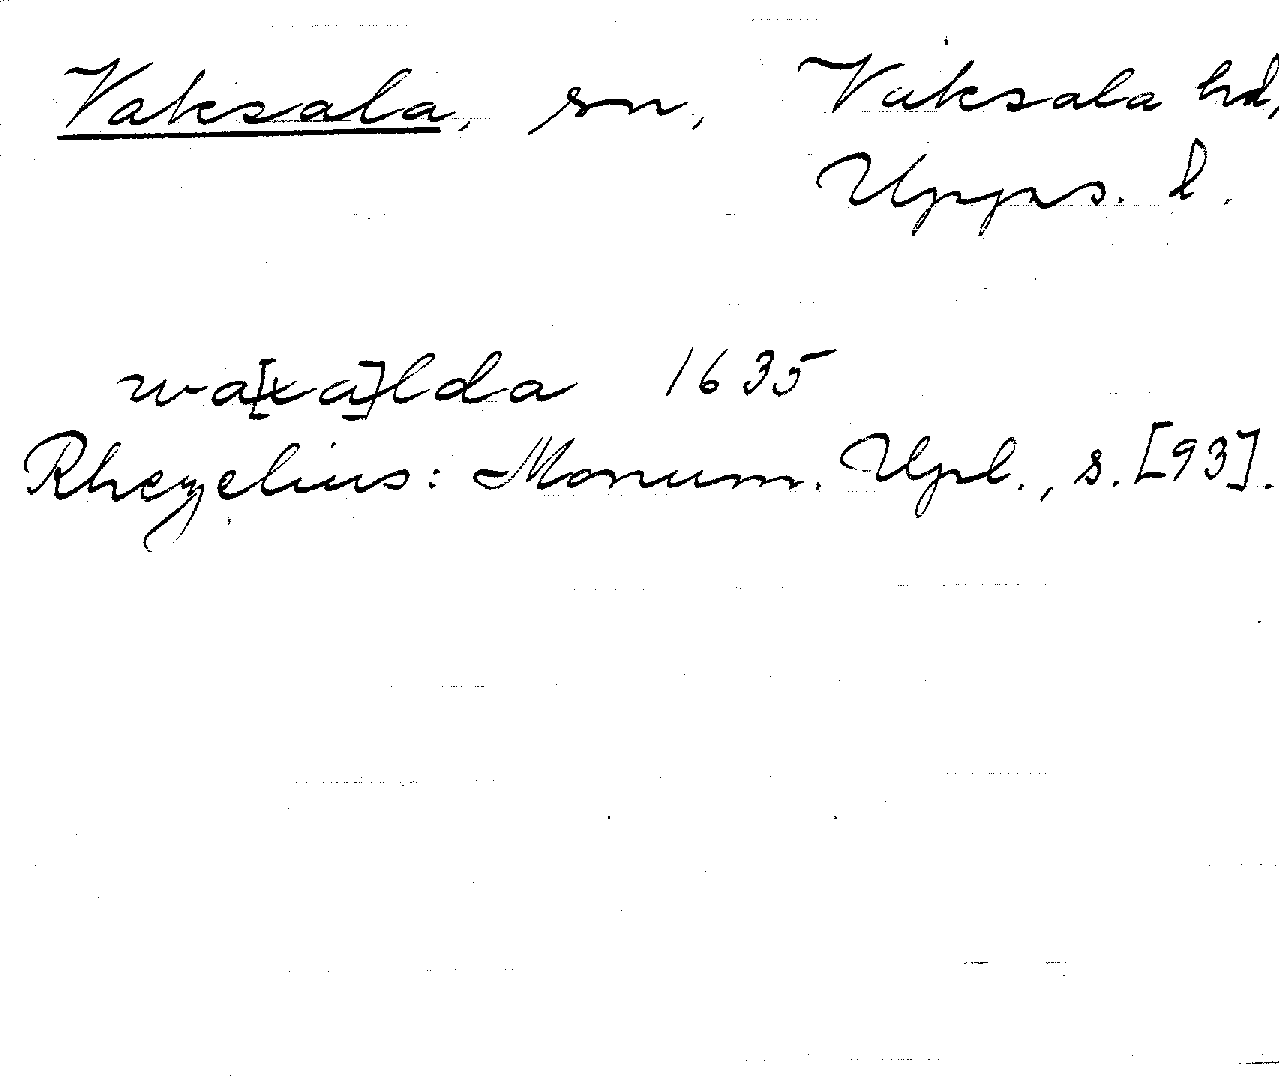 Vaksala, sn, Vaksala hd,
Upps. l.
wa[xa]lda 1635
Rhezelius: Monum. Upl., s. [93].